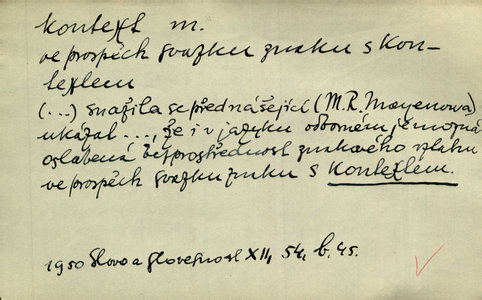 kontext m.
ve prospěch svazku znaku s kon-
textem
(...) snažila se přednášející (M. R. Mayenowa)
ukázat ..., že i v jazyku odborném je možná
oslabená bezprostřednost znakového vztahu
ve prospěch svazku znaku s kontextem.
1950 Slovo a slovesnost XII, 54, b. 45.